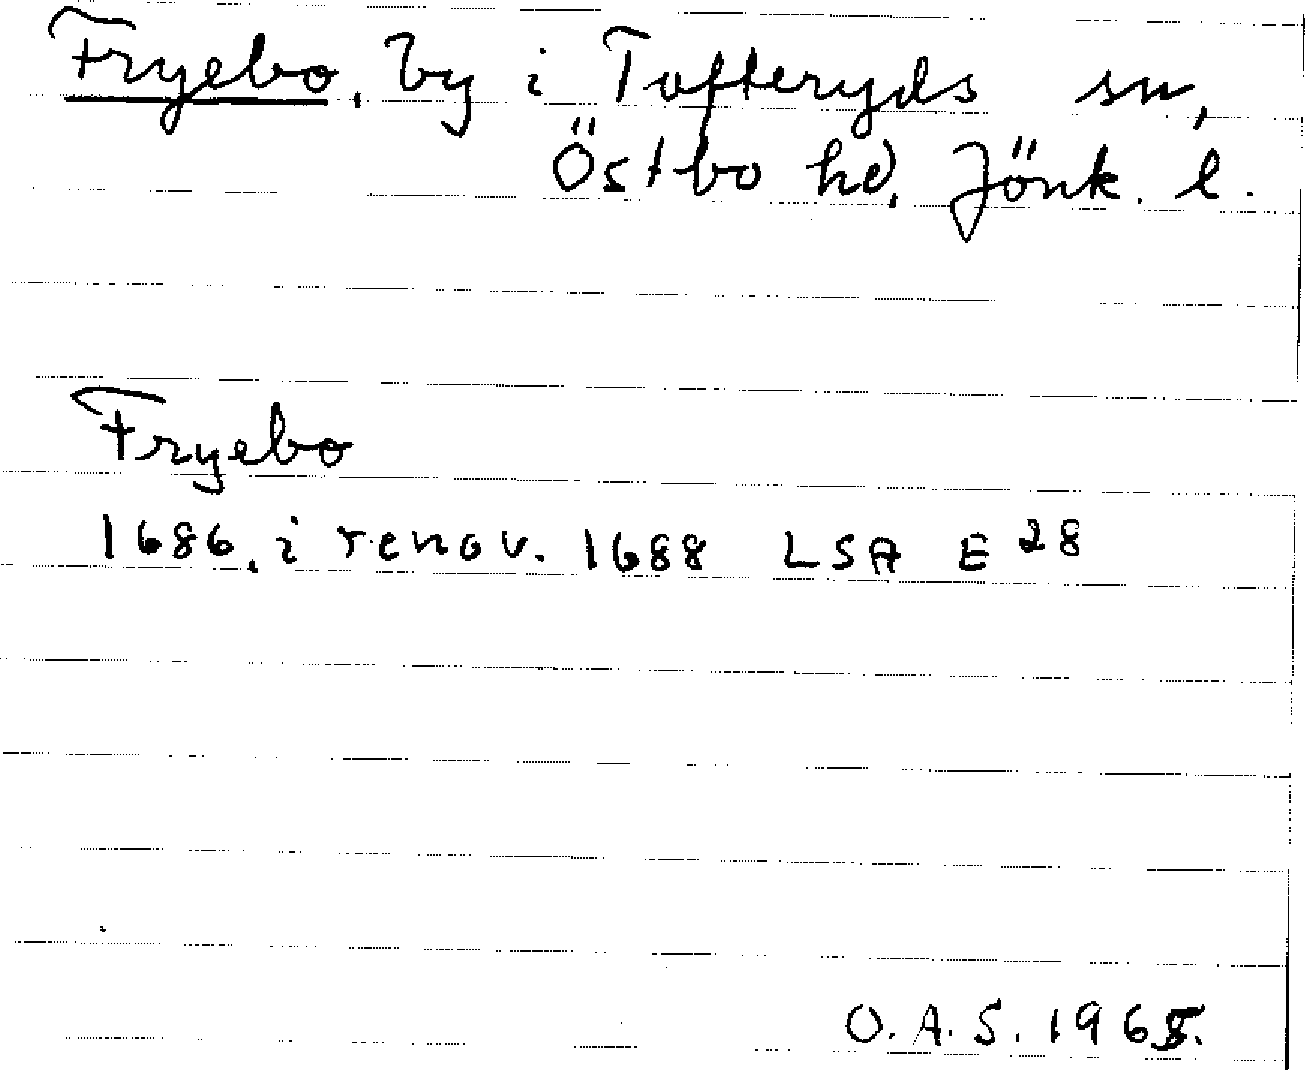 Fryebo, by i Tofteryds sn,
Östbo hd, Jönk. l.
Fryebo
1686, i renov. 1688 LSA E 28
O.A.S. 1965.